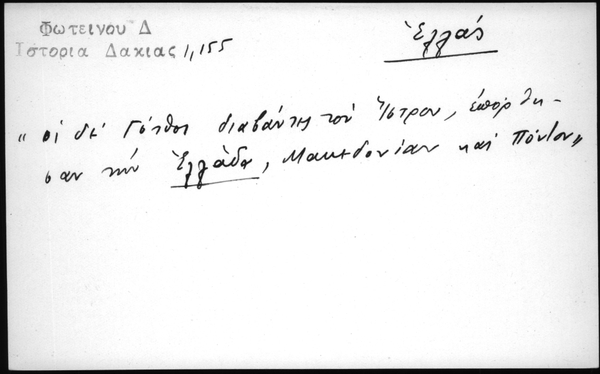 Φωτεινου Δ
Ιστορια Δακιας 1,155
Ἑλλάς
"οἱ δέ Γότθοι διαβάντες τόν Ἴστρον, ἐπόρθη-
σαν τήν Ἑλλάδα, Μακεδονίαν καί Πόντον"